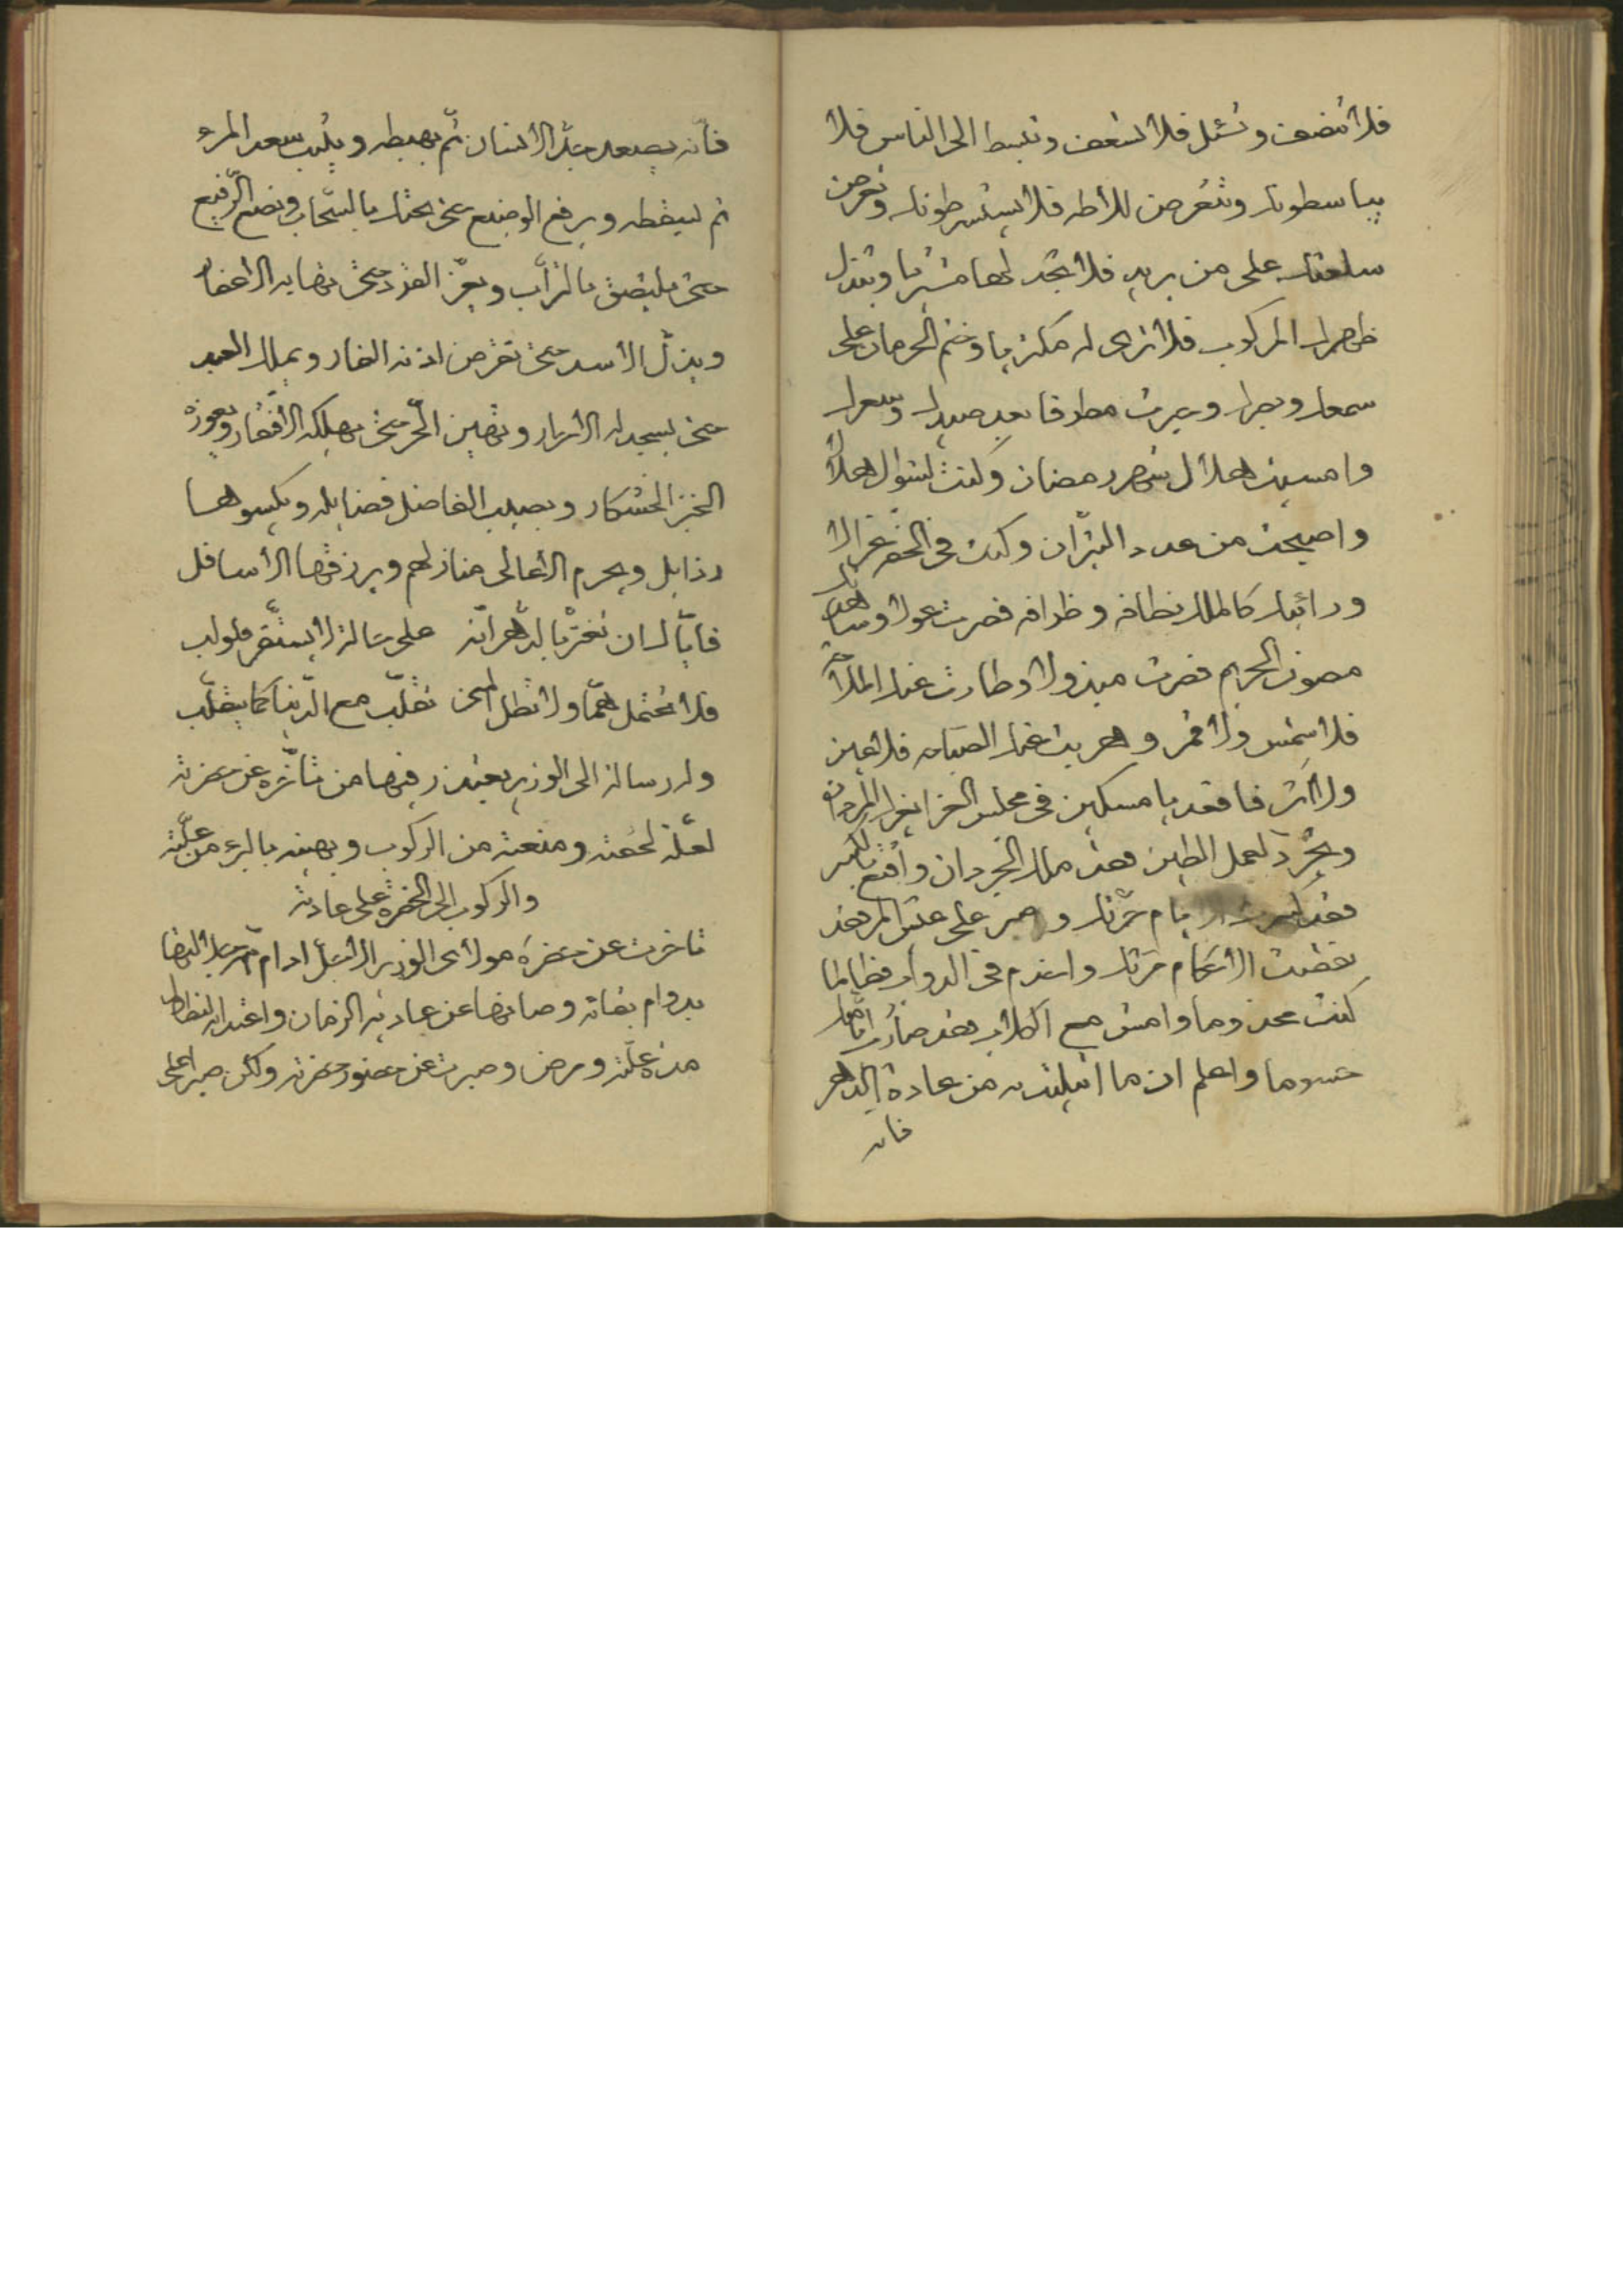 فلا تنصف وتسئل فلا تسعف وتنبسط الى الناس فلا
يباسطونك وتتعرض للاطه فلا يستشرطونك وتعرض
سلعتك على من يريد فلا تجد لها مشتريا وتبذل
ظهرك المركوب فلا ترى له مكتريا وختم الحرمان على
سمعك وبصرك وعبرت مطرقا بعد صيدك وسعرك
وامسيت هلال شهر رمضان وكنت لشوال هلالا
واصبحت من عدد البتران وكنت في الخفر غزالا
ورائيتك كالملك نظافه وظرافه فصرت غولا وشاهدتك
مصون الحريم فصرت مبذولا وطارت عنك الملاحة
فلا شمس ولا قمر وهربت عنك الصباحه فلا عين
ولا اثر فاقعد يا مسكين في مجلس العزا بغرا المردان
وتجرد لعمل الطين فقد ملك الجردان واقنع بالكسر
فقد كسرت الايام حرمتك واصبر على عيش المر فقد
نقضت الاحكام مرتك واخدم في الدور فطالما
كنت مخدوما وامش مع الكلاب فقد صارت ايامك
حسوما واعلم ان ما ابتليت به من عادة الدهر
فانه
فأنه يصعد بجد الانسان ثم يهبطه ويثبت سعد المرء
ثم يسقطه ويرفع الوضيع حتى يحتك بالسحاب ويضع الرفيع
حتى يلتصق بالتراب ويعز القرد حتى تهابه الاعفار
ويذل الاسد حتى تقرض اذنه الفار ويملك العبد
حتى يسجد له الاحرار ويهين الحر حتى يهلكه الافقار ويعوزه
الخبز الخشكار ويصلب الفاضل فضايله ويكسوها
رذايل ويحرم الاعالى منازلهم ويرزقها الاسافل
فاياك ان تغتر بالدهر انه على حالة لا يستقر فلولب
فلا تحتمل هما ولا تطل المنى تقلب مع الدنيا كما يتقلب
وله رسالة الى الوزير يعتذر فيها من تأخره عن حضرته
لعلة لحقته ومنعته من الركوب ويهنيه بالبرء من علته
والركوب الى الحضرة على عادته
تاخرت عن حضرة مولاى الوزير الاجل ادام الله جلالتها
بدوام بقائه وصانها عن عاديه الزمان واعتدائه لتطاول
مدة علته ومرض وصبرت عن حضور حضرته ولكن صبرا على